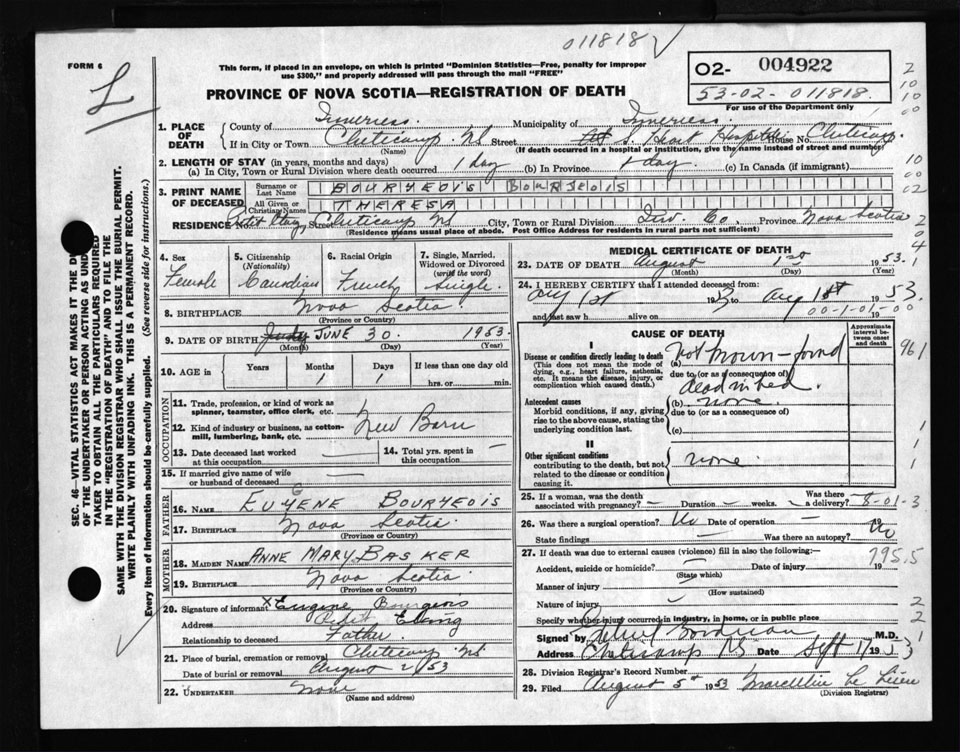 011818
FORM 6
This form, if placed in an envelope, on which is printed "Dominion Statistics—Free, penalty for improper
use $300," and properly addressed will pass through the mail "FREE"
O2- 004922
53-02-011818.
For use of the Department only
PROVINCE OF NOVA SCOTIA—REGISTRATION OF DEATH
1. PLACE OF DEATH
County of Inverness. Municipality of Inverness.
If in City or Town Cheticamp NS (Name) Street S. Heart Hospital House No. Cheticamp
(If death occurred in a hospital or institution, give the name instead of street and number)
2. LENGTH OF STAY (in years, months and days)
(a) In City, Town or Rural Division where death occurred 1 day (b) In Province 1 day. (c) In Canada (if immigrant)
3. PRINT NAME OF DECEASED
Surname or Last Name BOURGEOIS BOURJEOIS
All Given or Christian Names THERESA
RESIDENCE No. Street Cheticamp NS City, Town or Rural Division Inv. Co. Province Nova Scotia
(Residence means usual place of abode. Post Office Address for residents in rural parts not sufficient)
4. Sex Female
5. Citizenship (Nationality) Canadian
6. Racial Origin French
7. Single, Married, Widowed or Divorced (write the word) Single.
8. BIRTHPLACE Nova Scotia
(Province or Country)
9. DATE OF BIRTH JUNE 30 1953.
(Month) (Day) (Year)
10. AGE in Years Months 1 Days 1 If less than one day hrs. or min.
OCCUPATION
11. Trade, profession, or kind of work as spinner, teamster, office clerk, etc.
12. Kind of industry or business, as cotton-mill, lumbering, bank, etc. New Born
13. Date deceased last worked at this occupation
14. Total yrs. spent in this occupation —
15. If married give name of wife or husband of deceased
FATHER
16. NAME EUGENE BOURGEOIS
17. BIRTHPLACE Nova Scotia.
MOTHER
18. MAIDEN NAME ANNE MARY BASKER
19. BIRTHPLACE Nova Scotia
20. Signature of informant X Eugene Bourgeois
Address Petit Etang
Relationship to deceased Father.
21. Place of burial, cremation or removal Cheticamp NS
Date of burial or removal August 2/53
22. UNDERTAKER None
(Name and address)
MEDICAL CERTIFICATE OF DEATH
23. DATE OF DEATH August 1st 1953.
(Month) (Day) (Year)
24. I HEREBY CERTIFY that I attended deceased from:
Aug 1st 1953 to Aug 1st 1953.
and last saw h alive on 00-1-01-00
CAUSE OF DEATH
Approximate interval between onset and death
I
Disease or condition directly leading to death
(This does not mean the mode of dying, e.g., heart failure, asthenia, etc. It means the disease, injury, or complication which caused death.)
(a) not known - found
due to (or as a consequence of)
dead in bed.
Antecedent causes
Morbid conditions, if any, giving rise to the above cause, stating the underlying condition last.
(b) none.
due to (or as a consequence of)
(c)
II
Other significant conditions
contributing to the death, but not related to the disease or condition causing it.
none.
25. If a woman, was the death associated with pregnancy? — Duration — weeks. Was there a delivery? 8-01-3
26. Was there a surgical operation? No Date of operation — 19
State findings — Was there an autopsy? No
27. If death was due to external causes (violence) fill in also the following:—
Accident, suicide or homicide? — Date of injury 19
(State which)
795.5
Manner of injury
(How sustained)
Nature of injury
Specify whether injury occurred in industry, in home, or in public place
Signed by M.D.
Address Cheticamp NS Date Sept 1/1953
28. Division Registrar's Record Number
29. Filed August 5th 1953 Marcellin
(Division Registrar)
SEC. 46—VITAL STATISTICS ACT MAKES IT THE
OF THE UNDERTAKER OR PERSON ACTING AS
TAKER TO OBTAIN ALL THE PARTICULARS REQUIRED
IN THE "REGISTRATION OF DEATH" AND TO FILE THE
SAME WITH THE DIVISION REGISTRAR WHO SHALL ISSUE THE BURIAL PERMIT.
WRITE PLAINLY WITH UNFADING INK. THIS IS A PERMANENT RECORD.
Every item of information should be carefully supplied. (See reverse side for instructions.)
961